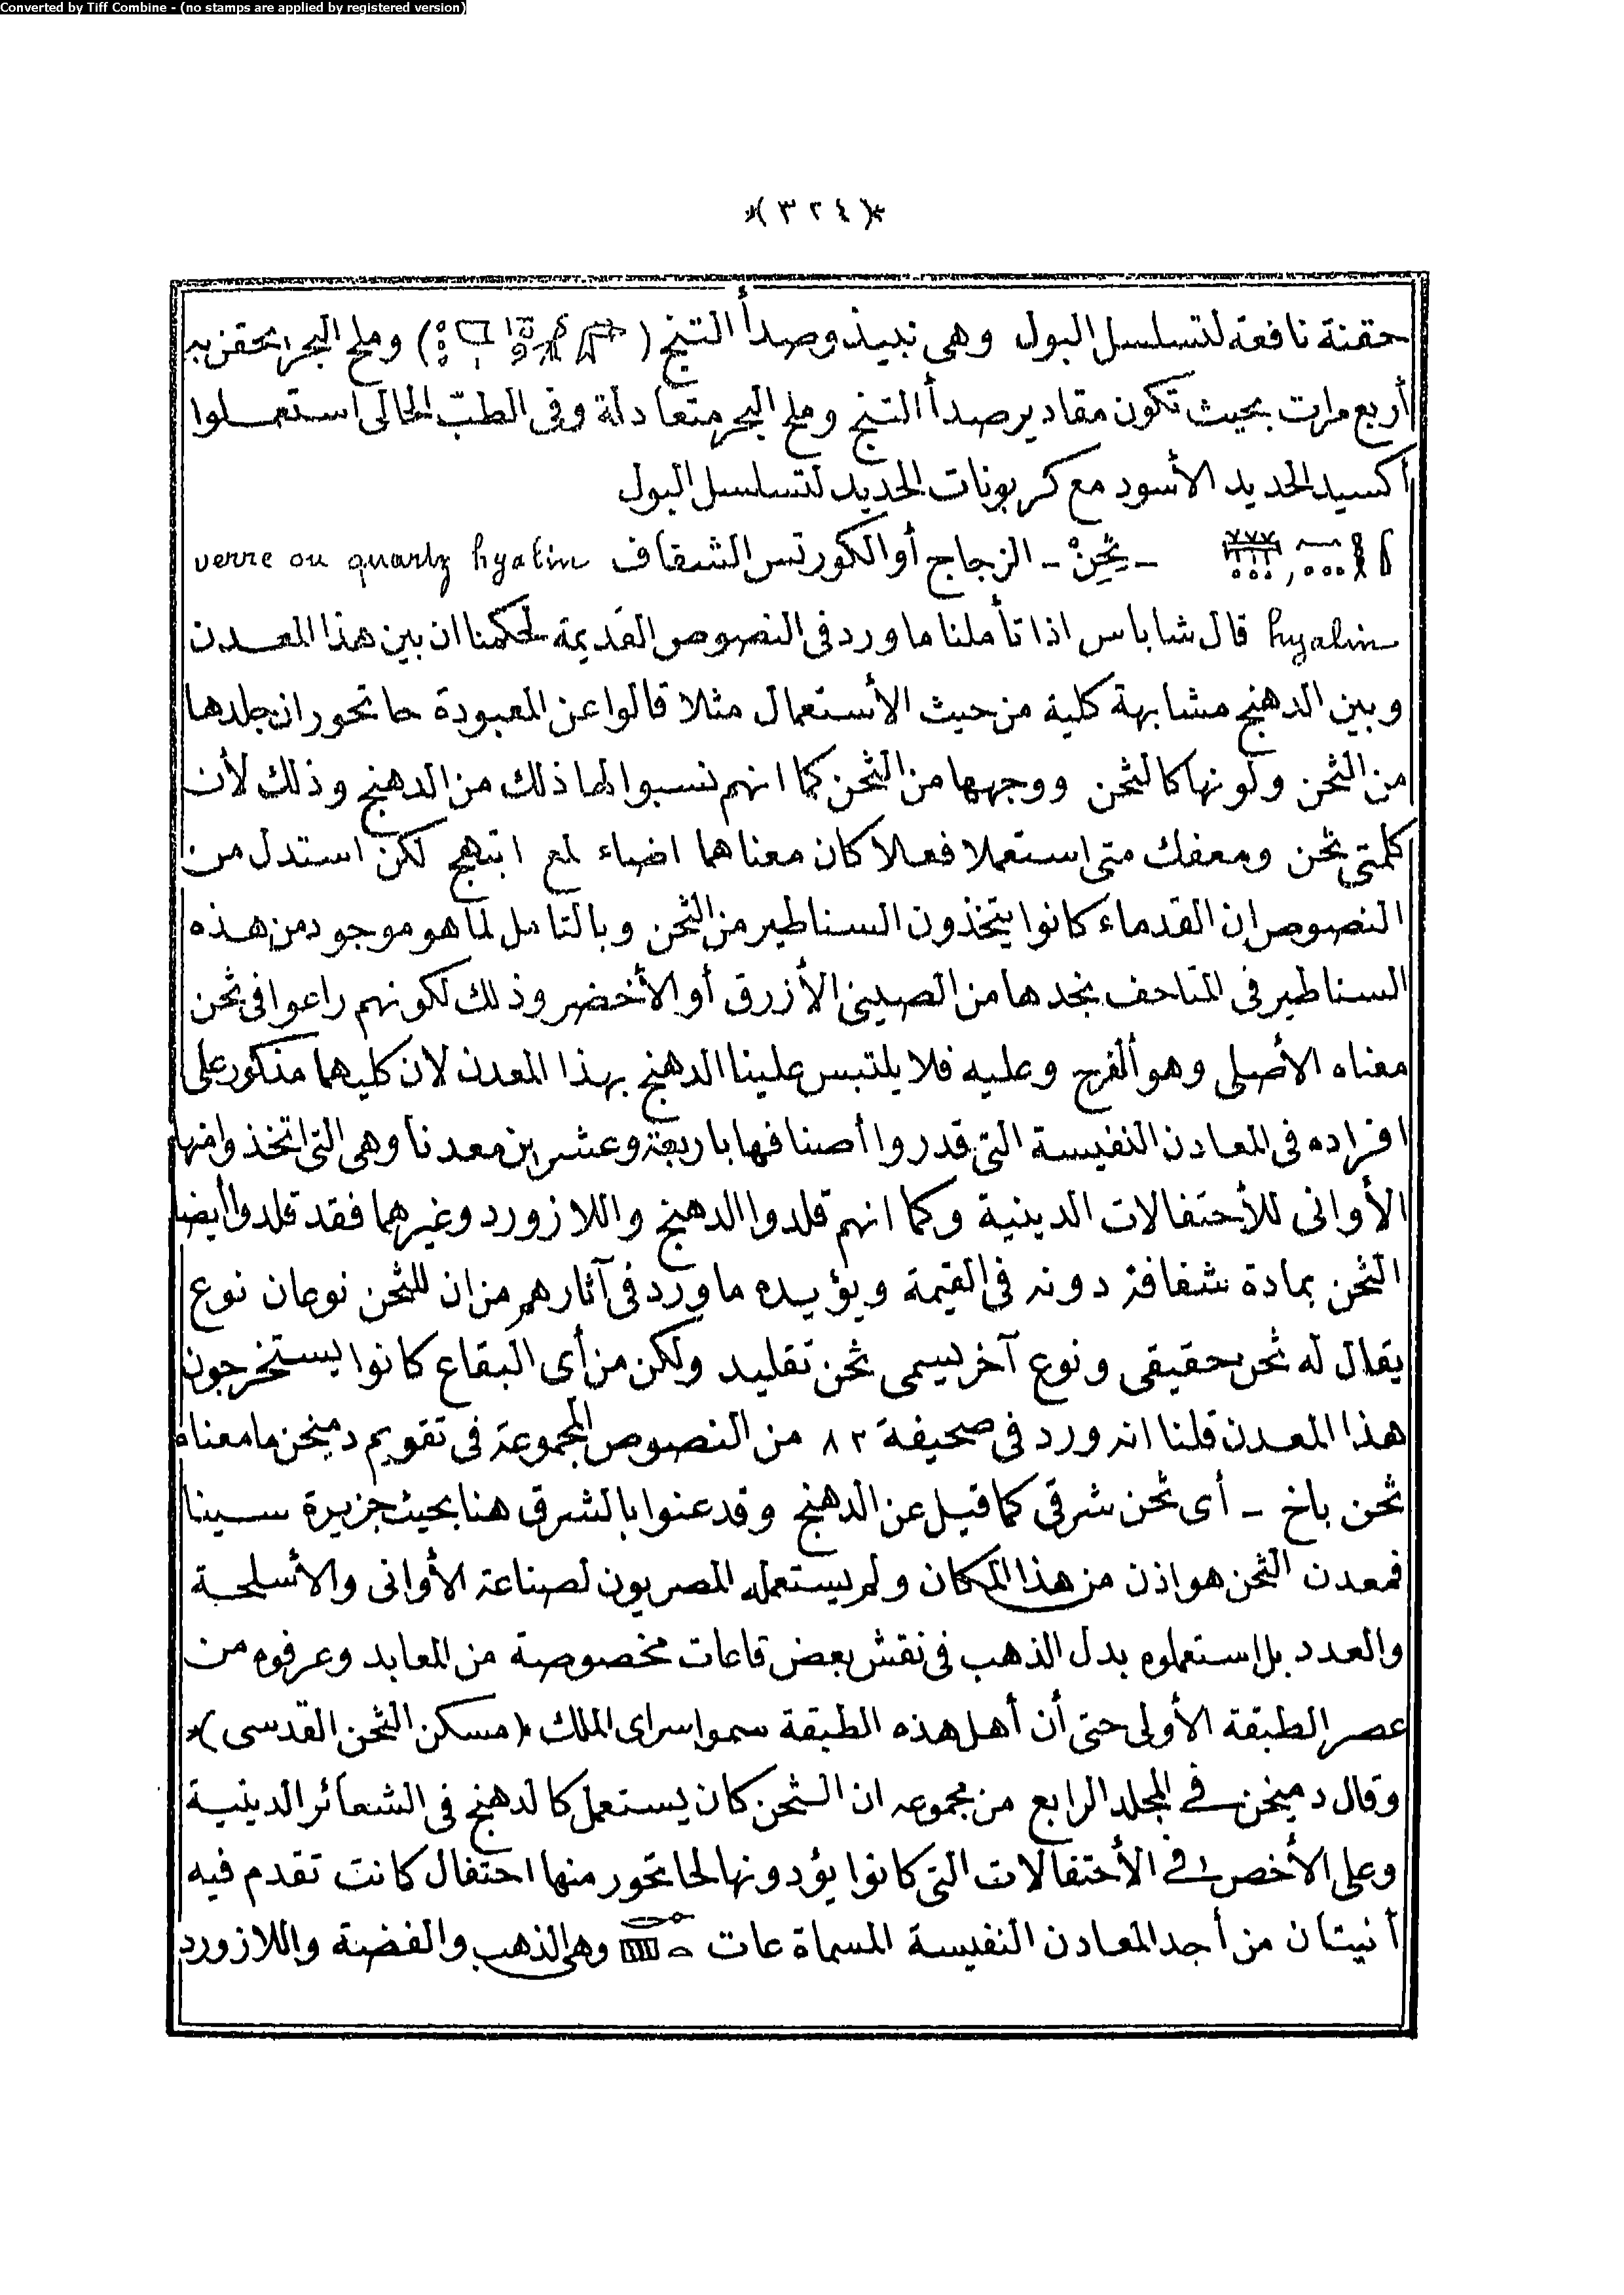 Converted by Tiff Combine - (no stamps are applied by registered version)
*(٣٢٤)*
حقنة نافعة لتسلسل البول وهى نبيذ وصدأ التنج ( ) وملح البحر يحقن به
أربع مرات بحيث تكون مقادير صدأ التنج وملح البحر متعادلة وفى الطبّ الحالى استعملوا
أكسيد الحديد الأسود مع كربونات الحديد لتسلسل البول
ـ ثَحِنْ ـ الزجاج أو الكورتس الشفاف verre ou quartz hyalin
hyalin قال شاباس اذا تأملنا ما ورد فى النصوص القديمة لحكمنا ان بين هذا المعدن
وبين الدهنج مشابهة كلية من حيث الأستعمال مثلا قالوا عن المعبودة حاتحور ان جلدها
من الثحن ولونها كالثحن ووجهها من الثحن كما انهم نسبوا لها ذلك من الدهنج وذلك لأن
كلمتى ثحن ومعفك متى استعملا فعلا كان معناهما اضاء لمع ابتهج لكن استدل من
النصوص ان القدماء كانوا يتخذون السناطير من الثحن وبالتامل لما هو موجود من هذه
السناطير فى المتاحف نجدها من الصينى الأزرق أو الأخضر وذلك لكونهم راعوا فى ثحن
معناه الأصلى وهو ألفرح وعليه فلا يلتبس علينا الدهنج بهذا المعدن لان كليهما مذكور على
افراده فى المعادن النفيسة التى قدروا أصنافها باربعة وعشرين معدنا وهى التى اتخذوا منها
الأوانى للأحتفالات الدينية وكما انهم قلدوا الدهنج واللازورد وغيرهما فقد قلدوا أيضا
الثحن بمادة شفافة دونه فى القيمة ويؤيده ما ورد فى آثارهم من ان للثحن نوعان نوع
يقال له ثحن حقيقى ونوع آخر يسمى ثحن تقليد ولكن من أى البقاع كانوا يستخرجون
هذا المعدن قلنا انه ورد فى صحيفة ٨٢ من النصوص المجموعة فى تقويم دميخن ما معناه
ثحن باخ ـ أى ثحن شرقى كما قيل عن الدهنج وقد عنوا بالشرق هنا بحيث جزيرة سينا
فمعدن الثحن هو اذن من هذا المكان ولم يستعمله المصريون لصناعة الأوانى والأسلحة
والعدد بل استعملوه بدل الذهب فى نقش بعض قاعات مخصوصة من المعابد وعرفوه من
عصر الطبقة الأولى حتى أن أهل هذه الطبقة سموا سراى الملك *(مسكن الثحن القدسى)*
وقال دميخن فى المجلد الرابع من مجموعه ان الثحن كان يستعمل كالدهنج فى الشعائر الدينية
وعلى الأخص فى الأحتفالات التى كانوا يؤدونها لحاتحور منها احتفال كانت تقدم فيه
آنيتان من أجد المعادن النفيسة المسماة عات وهى الذهب والفضة واللازورد